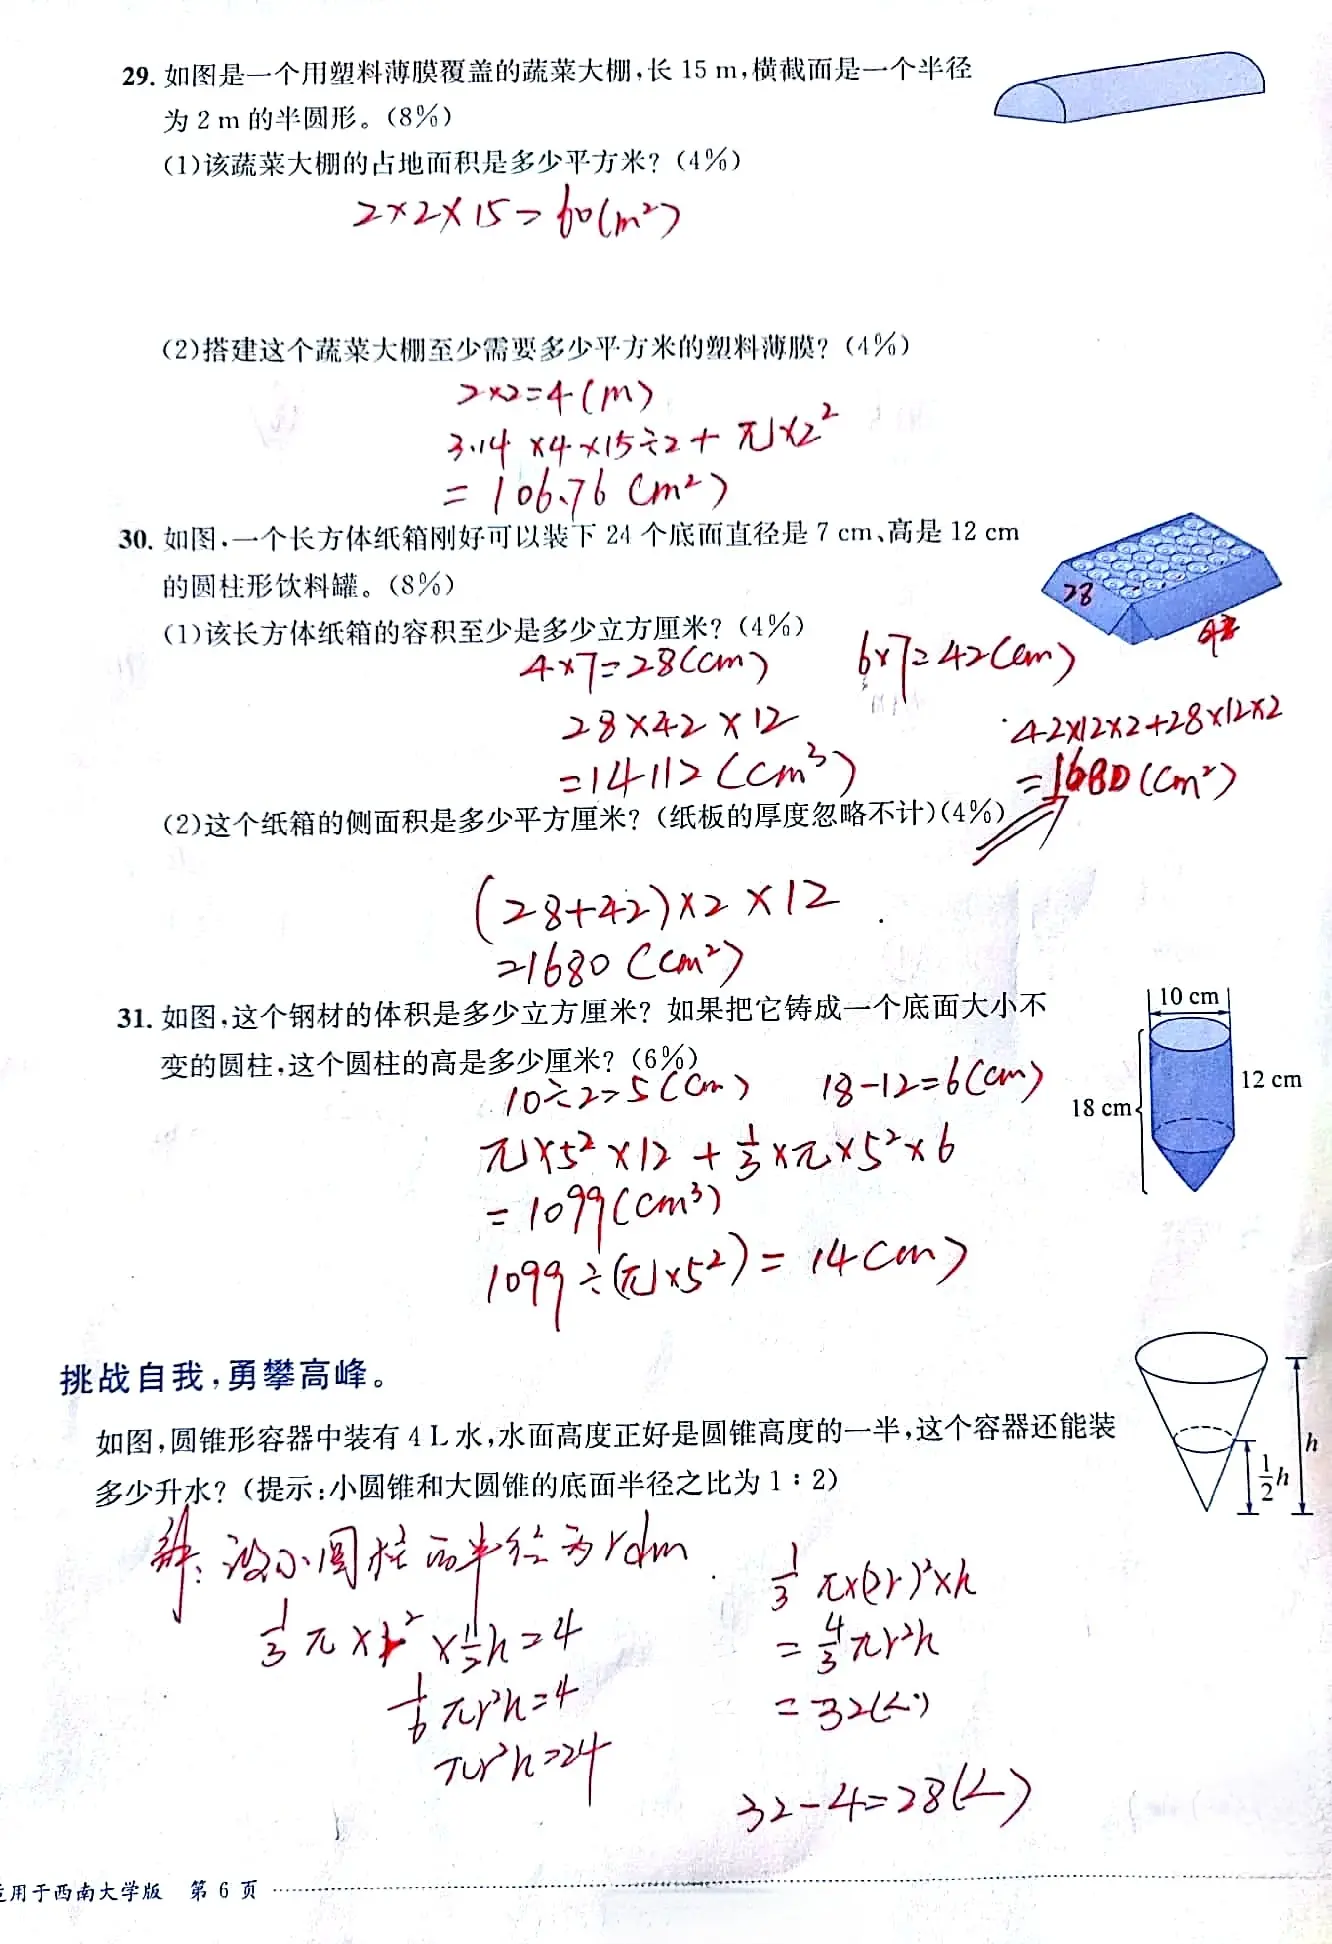 29. 如图是一个用塑料薄膜覆盖的蔬菜大棚,长 15 m,横截面是一个半径
为 2 m 的半圆形。(8%)
(1)该蔬菜大棚的占地面积是多少平方米?(4%)
2×2×15=60(m²)
(2)搭建这个蔬菜大棚至少需要多少平方米的塑料薄膜?(4%)
2×2=4(m)
3.14×4×15÷2+π×2²
=106.76(m²)
30. 如图,一个长方体纸箱刚好可以装下 24 个底面直径是 7 cm、高是 12 cm
的圆柱形饮料罐。(8%)
28
(1)该长方体纸箱的容积至少是多少立方厘米?(4%)
4×7=28(cm) 6×7=42(cm)
28×42×12
=14112(cm³)
42×12×2+28×12×2
=1680(cm²)
(2)这个纸箱的侧面积是多少平方厘米?(纸板的厚度忽略不计)(4%)
(28+42)×2×12
=1680(cm²)
31. 如图,这个钢材的体积是多少立方厘米? 如果把它铸成一个底面大小不
变的圆柱,这个圆柱的高是多少厘米?(6%)
10 cm
12 cm
18 cm
10÷2=5(cm) 18-12=6(cm)
π×5²×12+1/3×π×5²×6
=1099(cm³)
1099÷(π×5²)=14(cm)
挑战自我,勇攀高峰。
如图,圆锥形容器中装有 4 L 水,水面高度正好是圆锥高度的一半,这个容器还能装
多少升水?(提示:小圆锥和大圆锥的底面半径之比为 1∶2)
h
1/2 h
解:设小圆柱的半径为rdm
1/3π×r²×1/2h=4
1/6πr²h=4
πr²h=24
1/3π×(2r)²×h
=4/3πr²h
=32(L)
32-4=28(L)
适用于西南大学版 第 6 页